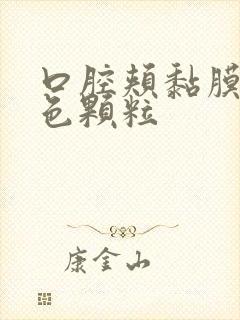 口腔颊黏膜
色颗粒
康金山